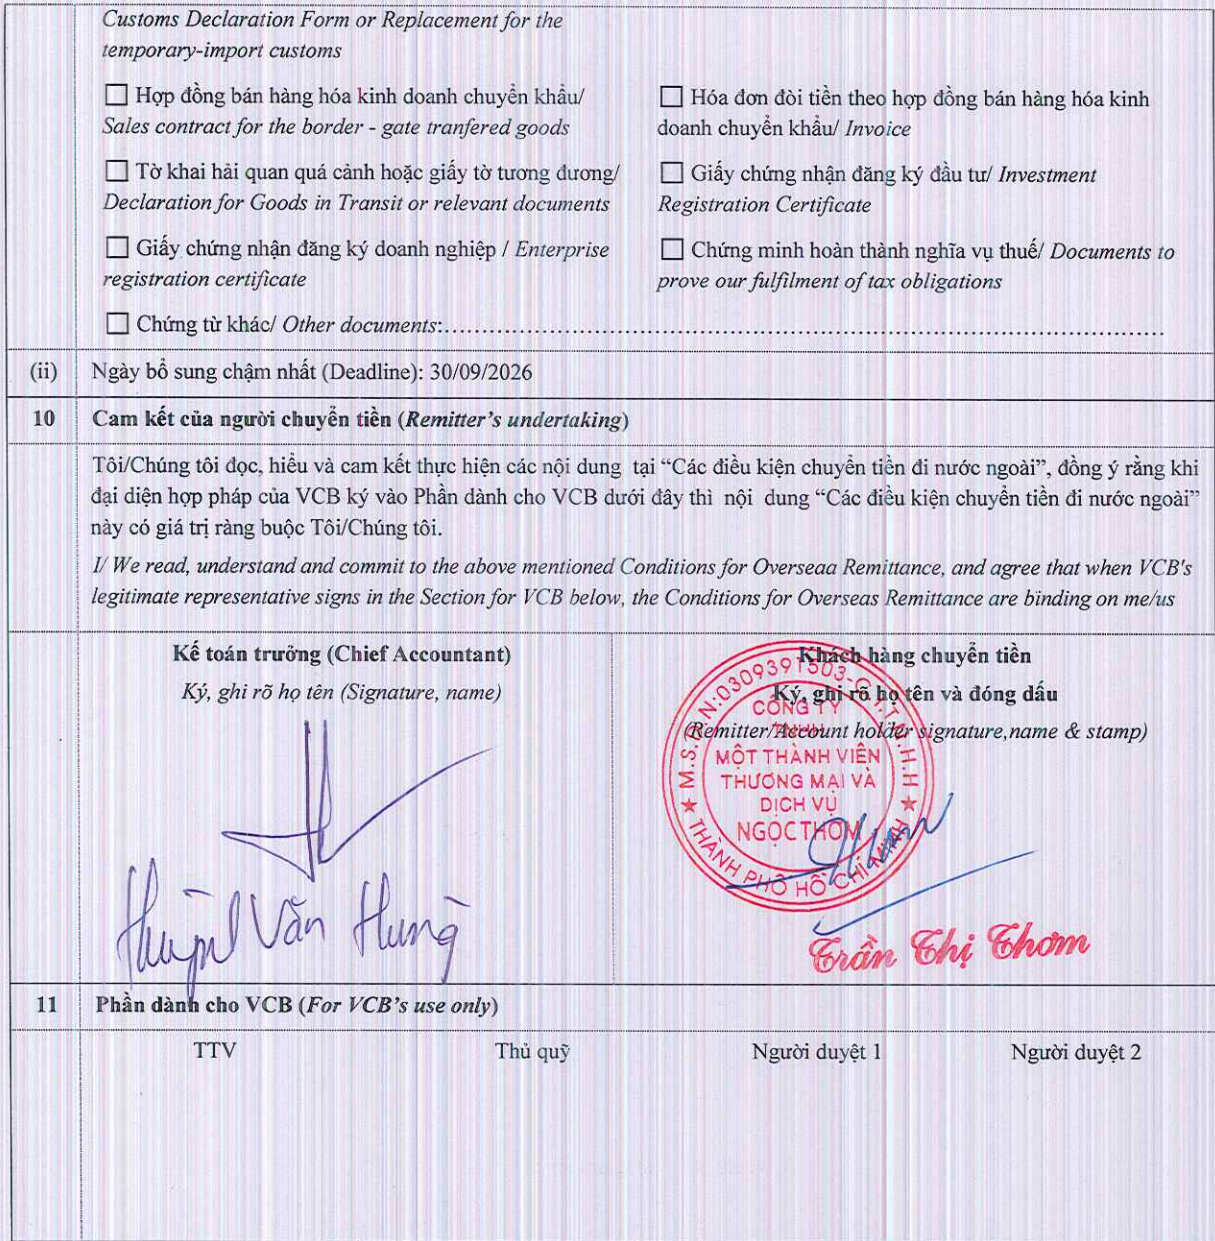 Customs Declaration Form or Replacement for the
temporary-import customs
☐ Hợp đồng bán hàng hóa kinh doanh chuyển khẩu/
Sales contract for the border - gate tranfered goods
☐ Hóa đơn đòi tiền theo hợp đồng bán hàng hóa kinh
doanh chuyển khẩu/ Invoice
☐ Tờ khai hải quan quá cảnh hoặc giấy tờ tương đương/
Declaration for Goods in Transit or relevant documents
☐ Giấy chứng nhận đăng ký đầu tư/ Investment
Registration Certificate
☐ Giấy chứng nhận đăng ký doanh nghiệp / Enterprise
registration certificate
☐ Chứng minh hoàn thành nghĩa vụ thuế/ Documents to
prove our fulfilment of tax obligations
☐ Chứng từ khác/ Other documents:..........................................................................................
(ii) Ngày bổ sung chậm nhất (Deadline): 30/09/2026
10 Cam kết của người chuyển tiền (Remitter's undertaking)
Tôi/Chúng tôi đọc, hiểu và cam kết thực hiện các nội dung tại "Các điều kiện chuyển tiền đi nước ngoài", đồng ý rằng khi
đại diện hợp pháp của VCB ký vào Phần dành cho VCB dưới đây thì nội dung "Các điều kiện chuyển tiền đi nước ngoài"
này có giá trị ràng buộc Tôi/Chúng tôi.
I/ We read, understand and commit to the above mentioned Conditions for Overseaa Remittance, and agree that when VCB's
legitimate representative signs in the Section for VCB below, the Conditions for Overseas Remittance are binding on me/us
Kế toán trưởng (Chief Accountant)
Ký, ghi rõ họ tên (Signature, name)
Huỳnh Văn Hưng
Khách hàng chuyển tiền
Ký, ghi rõ họ tên và đóng dấu
(Remitter/Account holder signature,name & stamp)
M.S.D.N:0309391503-C.T.T.N.H.H
CÔNG TY
TNHH
MỘT THÀNH VIÊN
THƯƠNG MẠI VÀ
DỊCH VỤ
NGỌC THƠM
THÀNH PHỐ HỒ CHÍ MINH
Trần Thị Thơm
11 Phần dành cho VCB (For VCB's use only)
TTV Thủ quỹ Người duyệt 1 Người duyệt 2